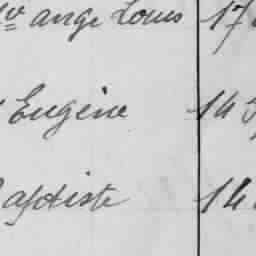 ange Louis 17
Eugène 14
aptiste 14